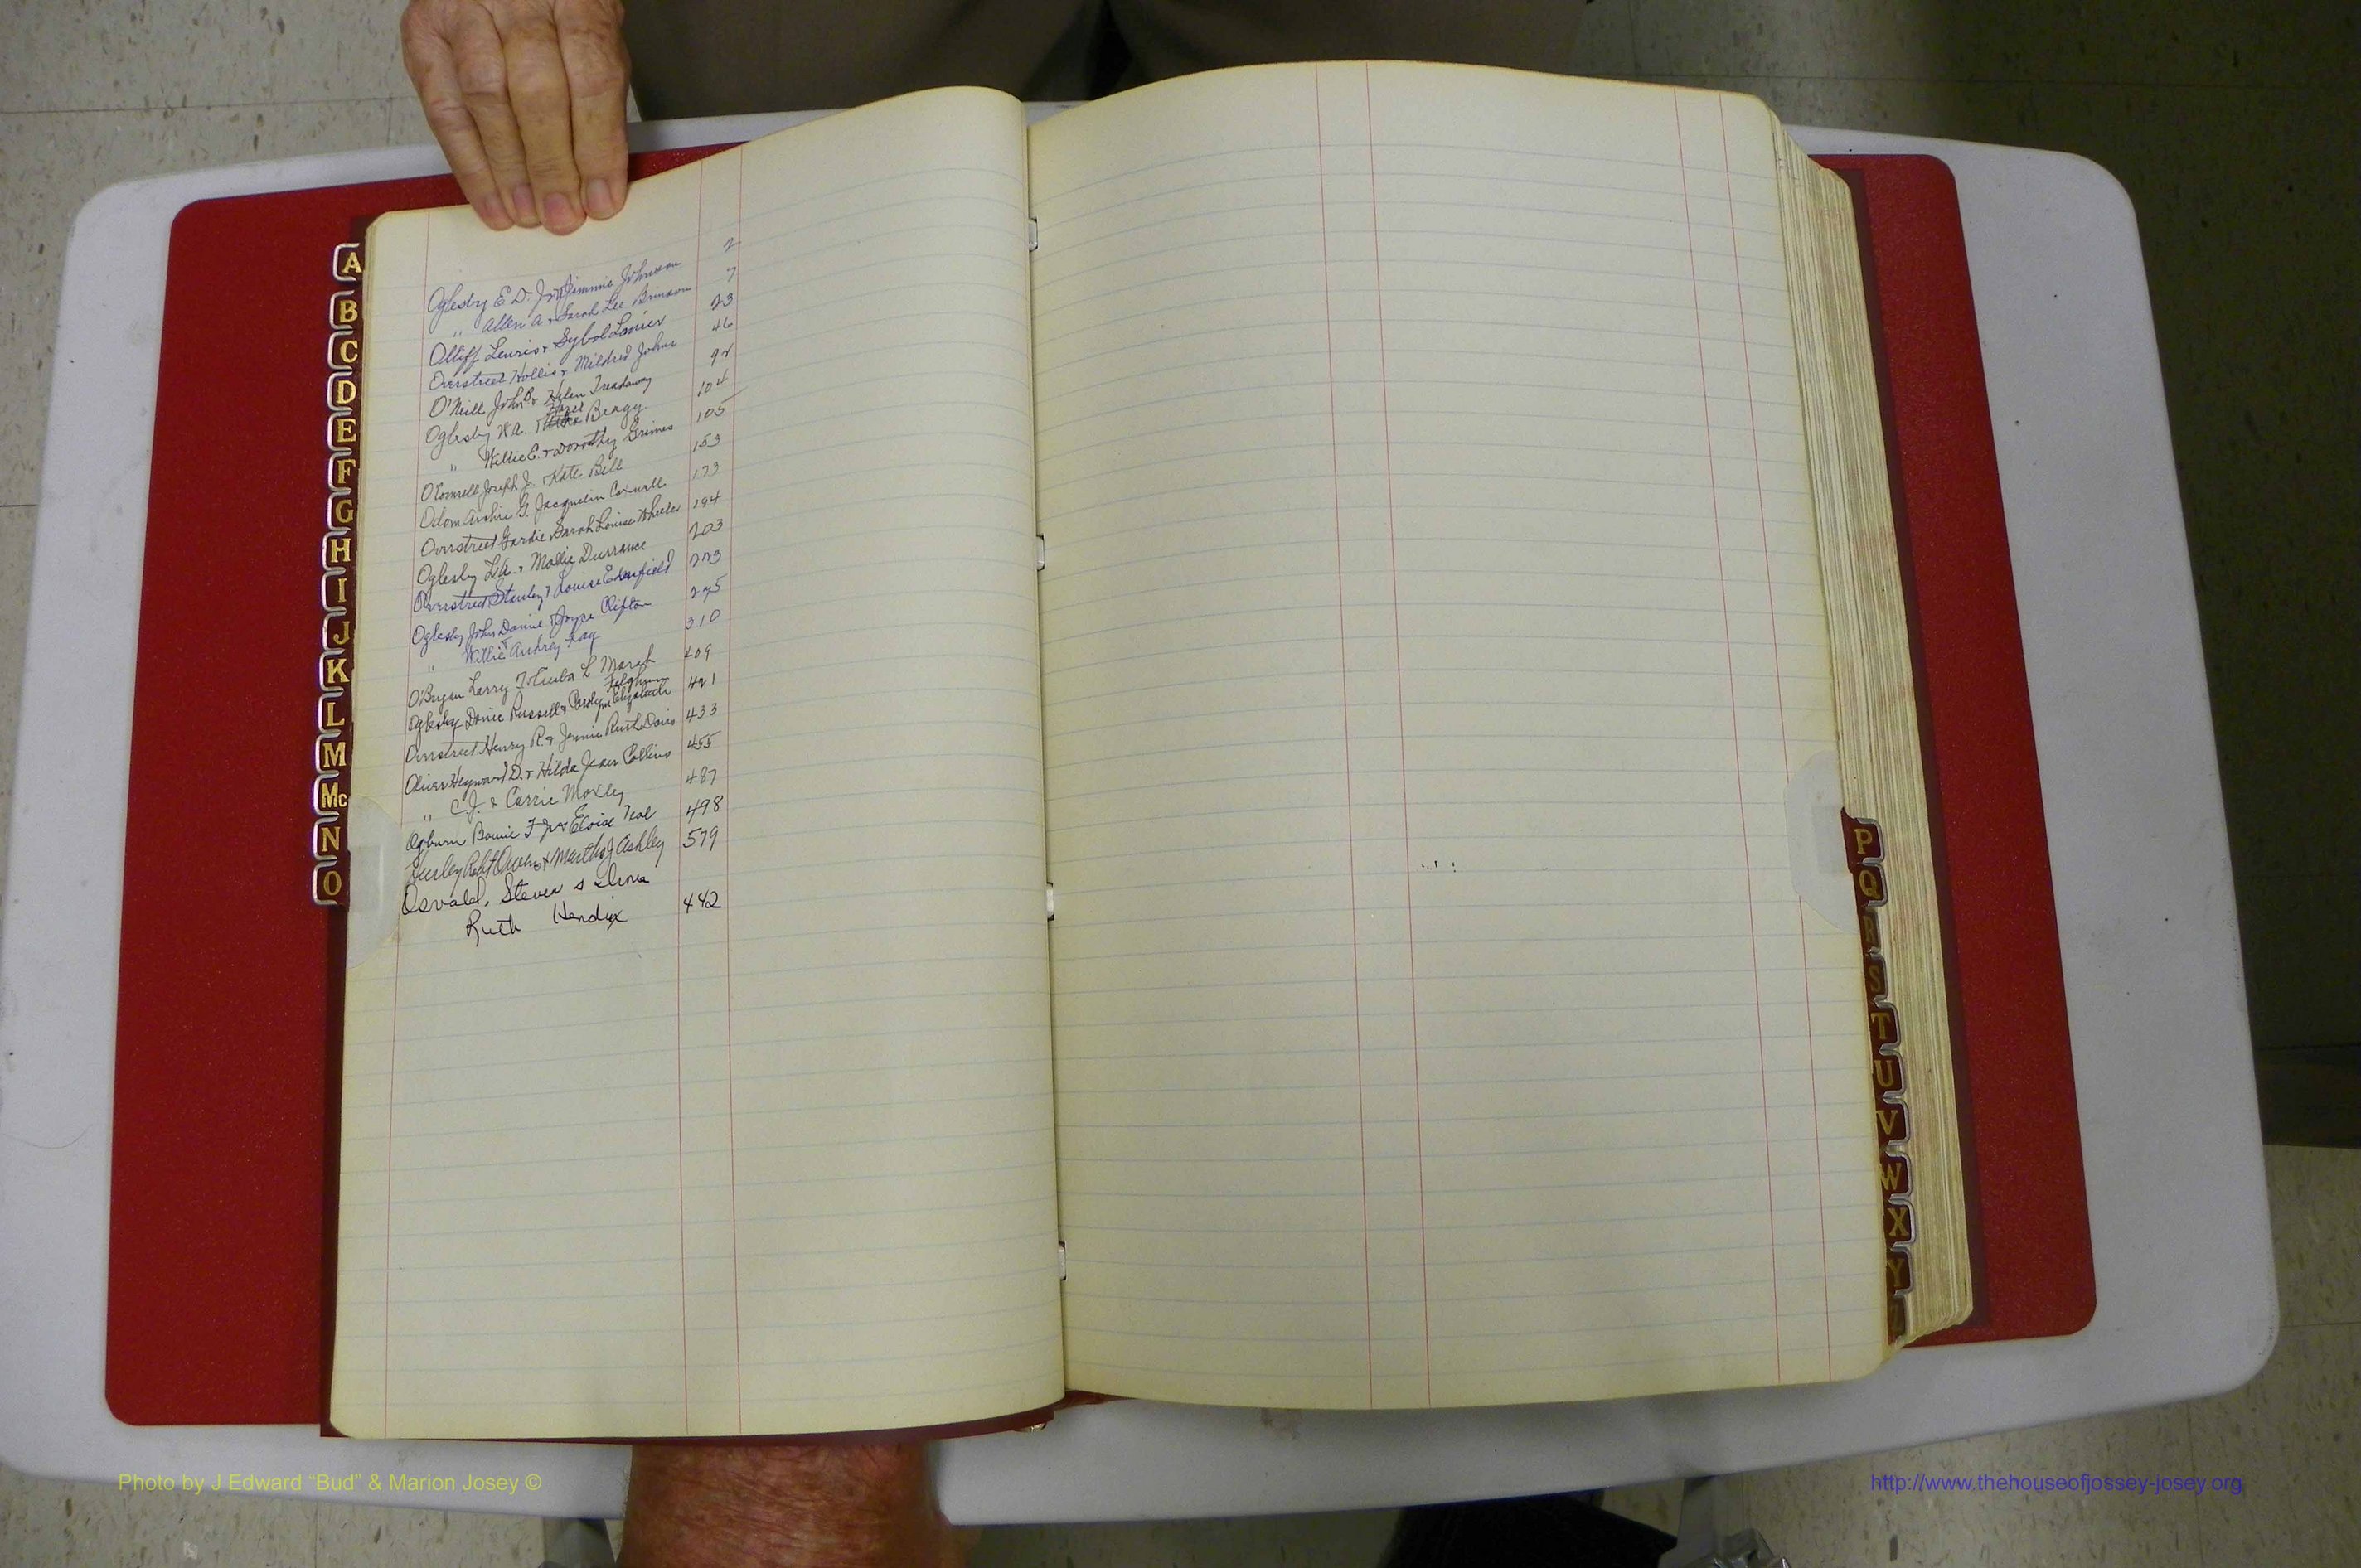 Oglesby E. D. Jr. & Jimmie Johnson 2
" Allen A. & Sarah Lee Brinson 7
Olliff Lewis & Sybol Lanier 23
Overstreet Hollis & Mildred Johns 46
O'Neill John & Helen Treadaway 92
Oglesby W.A. & Hazel Bragg 104
" Willie E. & Dorothy Grimes 105
O'Connell Joseph J. & Kate Bell 153
Odom Archie G. Jacquelin 173
Overstreet Gordie & Sarah Louise Wheeler 194
Oglesby L.A. & Mollie Durrance 203
Overstreet Stanley & Louise Edenfield
Oglesby John Daniel & Joyce Clifton
" Willie & Audrey
O'Bryan Larry T. & L Marsh 409
Fulghum
Oglesby Donie Russell & Carolyn Elizabeth 421
Overstreet Henry R. & Jennie Ruth Davis 433
Oliver Heyward D. & Hilda Jean Collins 455
" C.J. & Carrie Moxley 487
Ogburn Bonnie F Jr & Eloise Teal 498
Robt Owens & Martha J Ashley 579
Osvald, Steven &
Ruth Hendix 442
A
B
C
D
E
F
G
H
I
J
K
L
M
Mc
N
O
P
Q
R
S
T
U
V
W
X
Y
Z
Photo by J Edward “Bud” & Marion Josey ©
http://www.thehouseofjossey-josey.org